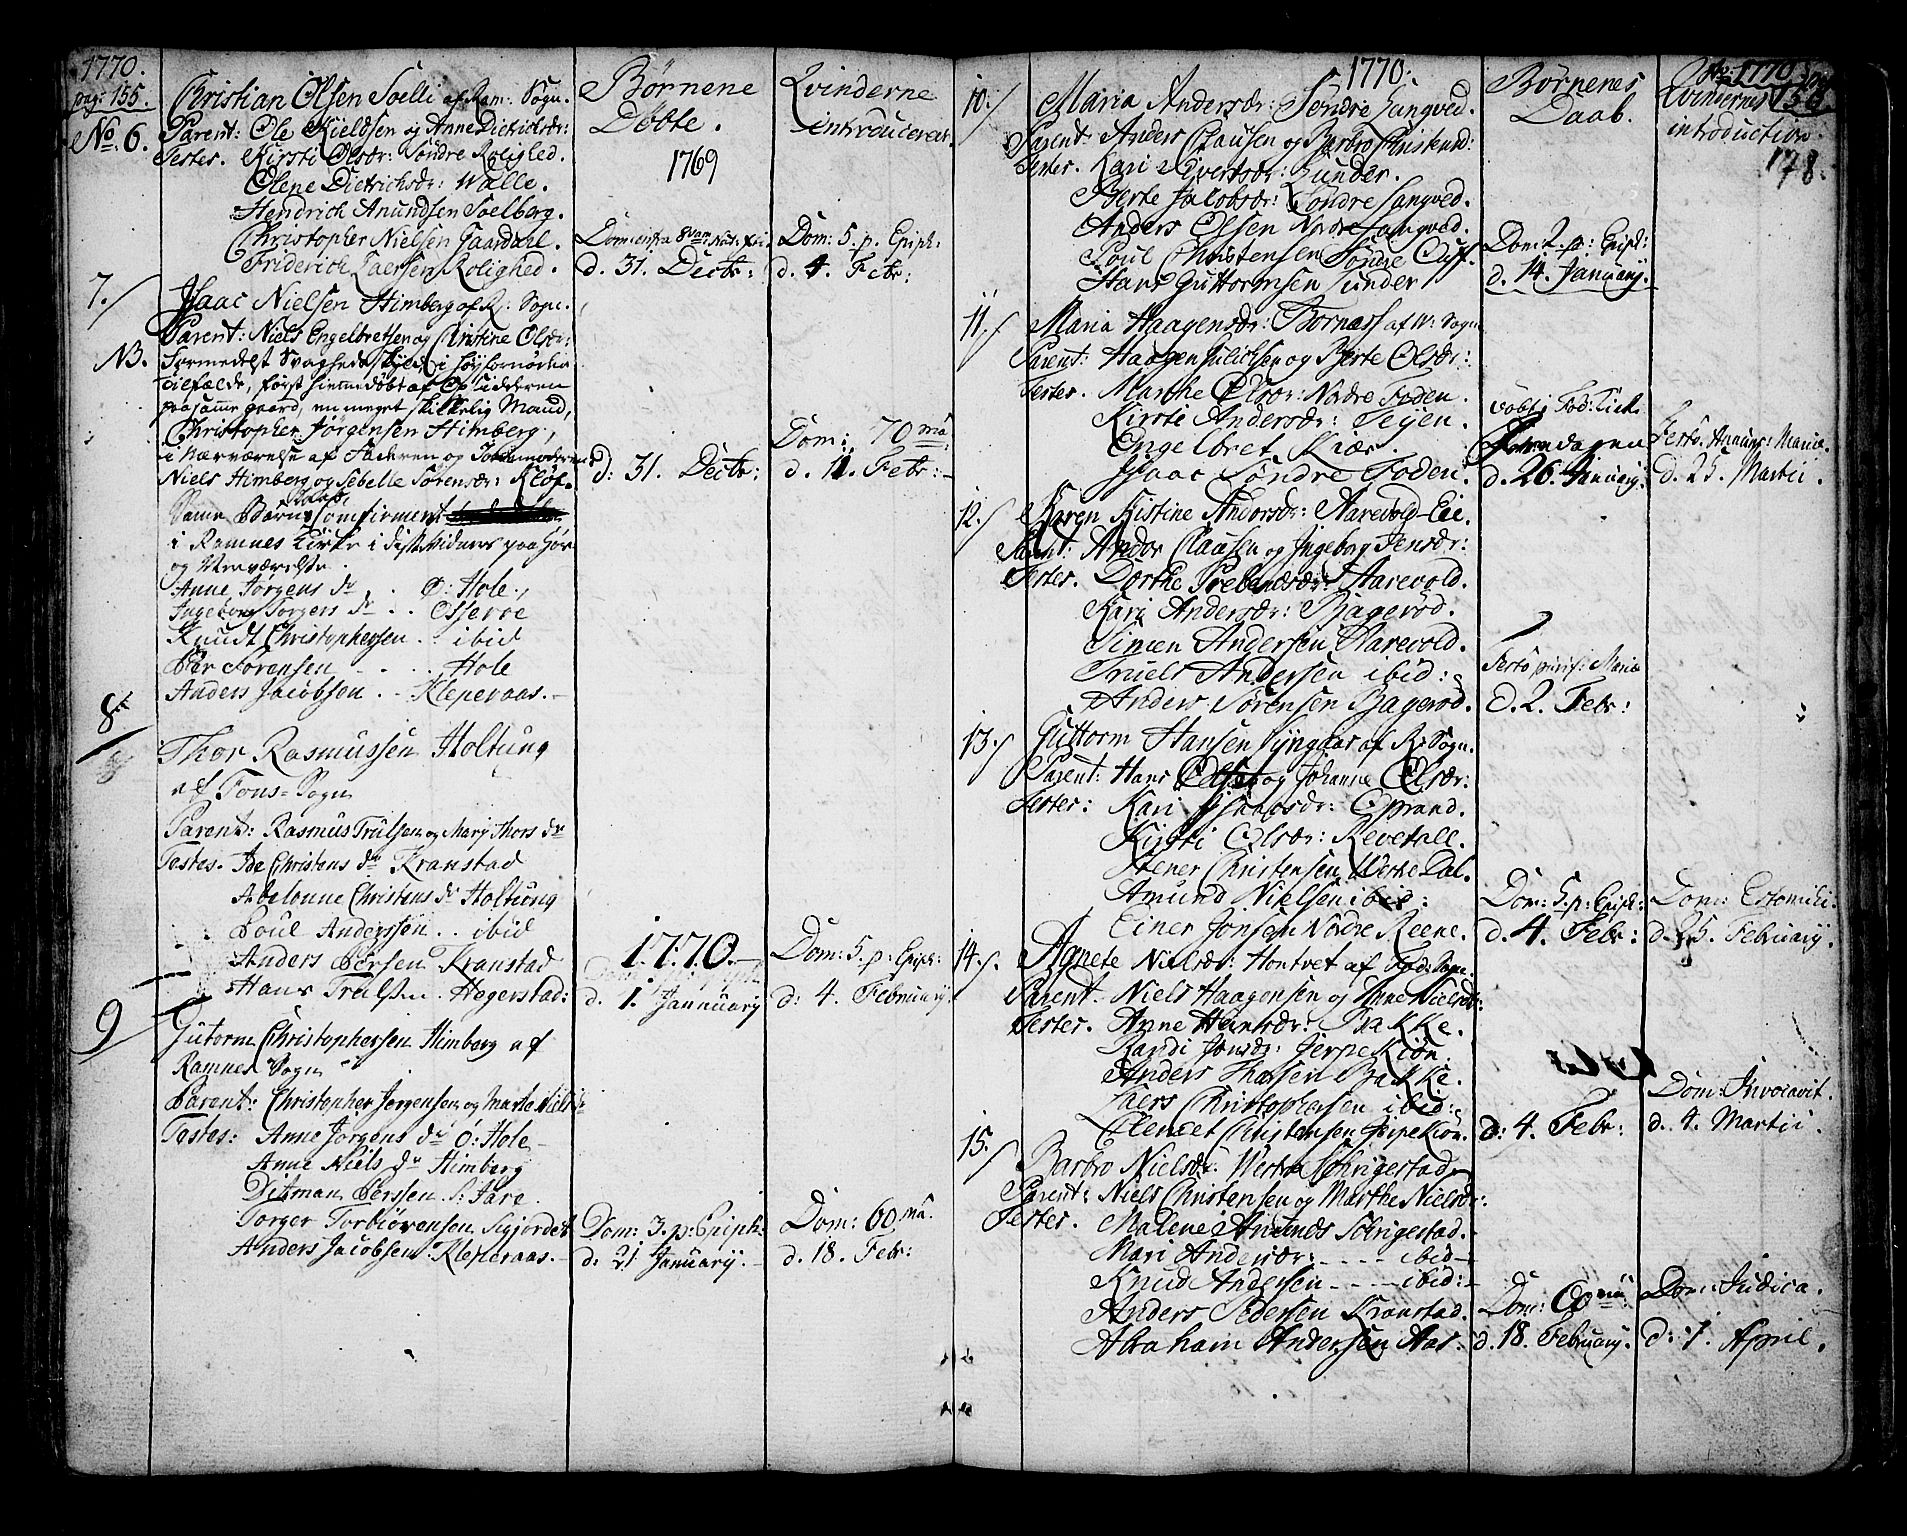 1770.
pag: 155.
No. 6.
Christian Olsen Soelli af Ram: Sogn.
Parent: Ole Kieldsen og Anne Dietrichsdr:
Testes. Kirsti Olsdr: Søndre Rolighed.
Olene Dietrichsdr: Walle.
Hendrich Anundsen Soelberg.
Christopher Nielsen Gaardahl.
Friderich Laersen Rolighed.
Børnene
Døbte.
1769
d. 31. Decbr:
Qvinderne
introduceret.
Dom: 5. p. Epiph:
d. 4. Febr:
7./
Isaac Nielsen Himberg af R: Sogn.
Parent: Niels Engelbretsen og Christine Olsdr:
NB. formedelst Svagheds skyld i høyfornødne
tilfælde, først hiemmedøbt af
paa samme gaard, en meget skikkelig Mand,
Christopher Jørgensen Himberg,
i Nærværelse af Faderen og Jordemoderen
Niels Himberg og Sebelle Sørensdr: Kløf.
Samme Barns Daab Confirmeret
i Ramnes Kirke i disse Vidners paahør
og Nærværelse.
Anne Jørgens dr . . Ø: Hole.
Ingeborg Torgers dr . . Osserøe
Knudt Christophersen . . ibid
Pær Sørensen . . . Hole
Anders Jacobsen . . Kleperaas.
d: 31. Decbr:
Dom: 70 ma
d. 11. Febr:
8
Thor Rasmussen Holtung
af Fons Sogn
Parent: Rasmus Trulsen og Mary Thors dr
Testes. Ide Christens dr Kranstad
Abelonne Christens dr Holtung
Poul Anderssen . . ibid
Anders Persen Kranstad
Hans Trulsen. Hegerstad:
1770.
d. 1. Januarij
Dom: 5. p: Epiph:
d: 4. Februarij
9
Gutorm Christophersen Himberg af
Ramnes Sogn
Parent: Christopher Jørgensen og Marte Niels dr
Testes: Anne Jørgens dr Ø: Hole
Anne Niels dr Himberg
Ditman Perssen. S: Fare.
Torger Torbiørensen Sigjordet
Anders Jacobsen Kleperaas.
Dom: 3. p: Epiph:
d: 21 Januarij.
Dom: 60 ma.
d. 18. Febr:
1770.
Børnenes
Daab.
1770
Qvindernes
introduction.
178.
10./
Maria Andersdr: Søndre Langved.
Parent: Anders Clausen og Barbro
Testes. Kari Sivertsdr: Lunder.
Berte Jacobsdr: Søndre Langved.
Anders Olsen Nordre Langved.
Poul Christensen Søndre Cuf.
Hans Guttormsen Lunder
Dom: 2. p: Epiph:
d. 14. Januarij.
11./
Maria Haagensdr: Bornæss af W: Sogn
Parent: Haagen Julichsen og Berte Olsdr:
Testes. Marthe Olsdr: Nordre Foden.
Kirsti Andersdr: Teijen.
Engelbret Kiær.
Isaac Søndre Foden.
d. 26. Januarij.
Festo Annunc: Mariæ
d. 25. Martii.
12./
Karen Kistine Andorsdr: Aarevold-Eie.
Parent: Andor Clausen og Ingeborg Jensdr:
Testes. Dorthe Prebensdr: Aarevold.
Kari Andersdr: Bagerød.
Simen Andersen Aarevold.
Truels Andersen ibid:
Anders Sørensen Bagerød.
Festo purif: Mariæ
d. 2. Febr:
13./
Guttorm Hansen Lyngaas af R: Sogn.
Parent: Hans Olsen og Johanne Olsdr:
Testes: Kari Isaacsdr: Oprand.
Kirsti Olsdr: Revetall.
Stener Christensen Werke Dal.
Amund Nielsen ibid:
Einer Jonsen Nordre Reene.
Dom: 5. p: Epiph:
d. 4. Febr:
Dom: Estomihi.
d. 25. February.
14./
Agnete Nielsdr: Hontvet af Fod: Sogn.
Parent. Niels Haagensen og Anne Nielsdr:
Testes. Anne Hansdr: Bakke.
Randi Jonsdr: Jerpekiøn.
Anders Hansen Bakke.
Laers Christophersen ibid:
Clemet Christensen Jerpekiøn.
d: 4. Febr:
Dom: Invocavit.
d. 4. Martii.
15./
Barbro Nielsdr: Westre Solvigestad
Parent: Niels Christensen og Marthe Nielsdr:
Testes. Malene Amunds Solvigestad.
Mari Andersdr: . . . ibid
Knud Andersen . . . ibid:
Anders Pedersen Kranstad.
Abraham Andersen Aas.
Dom: 60 ma.
d. 18. February.
Dom: Judica.
d: 1. April.